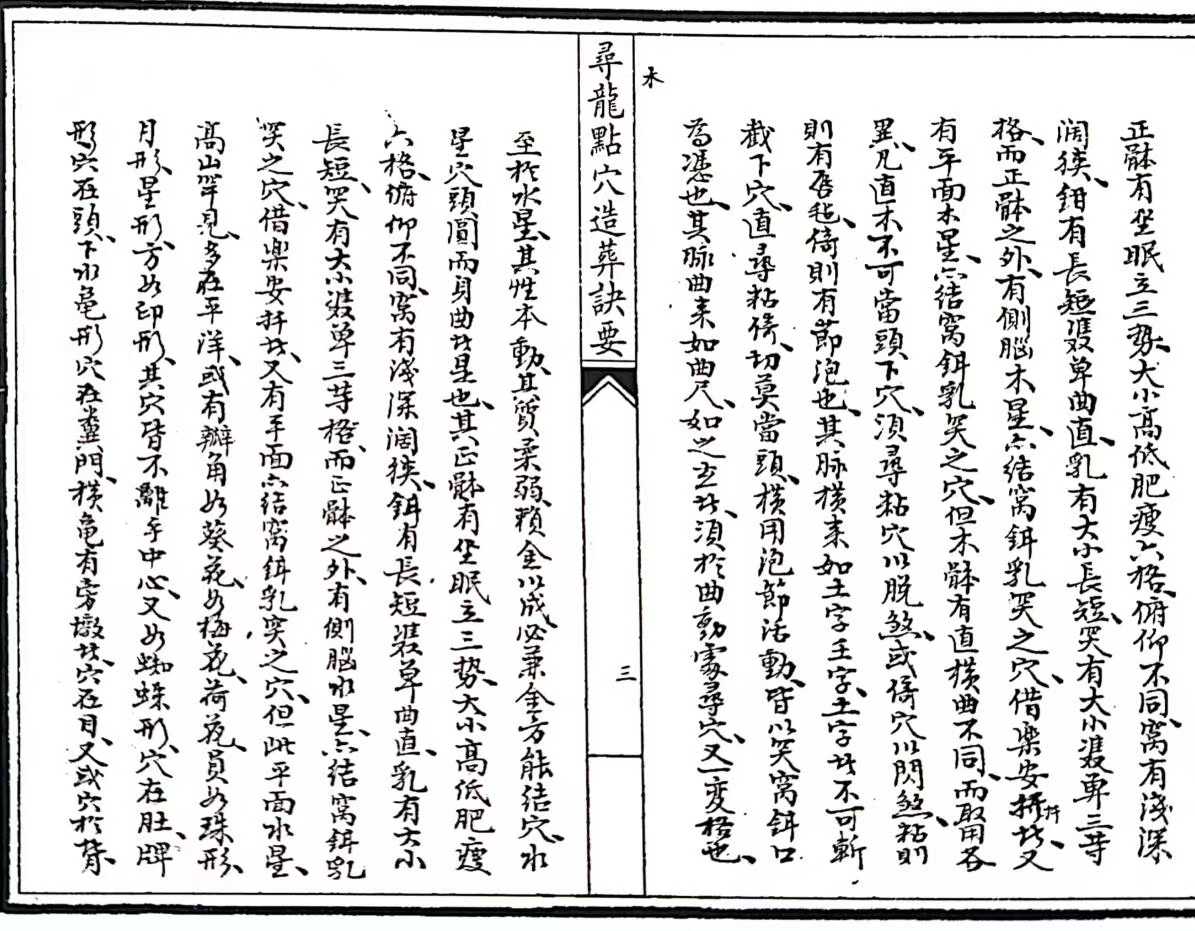 木
正骵有坐眠立三勢大小高低肥瘦六格俯仰不同窩有淺深
闊狹鉗有長短双单曲直乳有大小長短突有大小双单三等
格而正骵之外有側腦木星亦结窩鉗乳突之穴借楽安扦此又
有平面木星亦结窩鉗乳突之穴但木骵有直橫曲不同而取用各
異凡直木不可當頭下穴須尋粘穴以脱煞或倚穴以閃煞粘則
則有唇毡倚則有節泡也其脉橫来如土字王字土字此不可斬
截下穴直尋粘倚切莫當頭橫用泡節活動皆以突窩鉗口
為憑也其脉曲来如曲尺如之玄此須扵曲動處尋穴又一変格也
尋龍點穴造葬訣要
三
至扵水星其性本動其質柔弱頼金以成必兼金方能结穴水
星穴頭圓而身曲此是也其正骵有坐眠立三势大小高低肥瘦
六格俯仰不同窩有淺深闊狹鉗有長短双单曲直乳有大小
長短突有大小双单三等格而正骵之外有側腦水星亦结窩鉗乳
突之穴借楽安扦此又有平面亦结窩鉗乳突之穴但此平面水星
高山罕見多在平洋或有瓣角如葵花如梅花荷花員如珠形
月形星形方如印形其穴皆不離乎中心又如蜘蛛形穴在肚牌
形穴在頭下水龟形穴在粪門橫龟有旁墩此穴在目又或穴扵背